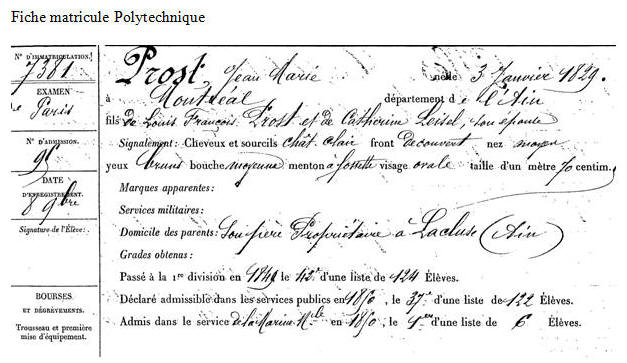 Fiche matricule Polytechnique
N° D'IMMATRICULATION.
7381
EXAMEN
de Paris
N° D'ADMISSION.
DATE
D'ENREGISTREMENT.
8 9bre
Signature de l'Élève:
BOURSES
ET DÉGRÈVEMENTS.
Trousseau et première
mise d'équipement.
Prost Jean Marie né le 3 Janvier 1829.
à Montréal département de l'Ain
fils de Louis François Prost et de Catherine Loisel, son épouse
Signalement: Cheveux et sourcils chât. clair front découvert nez moyen
yeux bruns bouche moyenne menton à fossette visage ovale taille d'un mètre 70 centim.
Marques apparentes:
Services militaires:
Domicile des parents: Son père Propriétaire à Lacluse (Ain)
Grades obtenus:
Passé à la 1re division en 1849 le 42e d'une liste de 124 Élèves.
Déclaré admissible dans les services publics en 1850, le 37e d'une liste de 122 Élèves.
Admis dans le service de la Marine Mle en 1850, le 1er d'une liste de 6 Élèves.